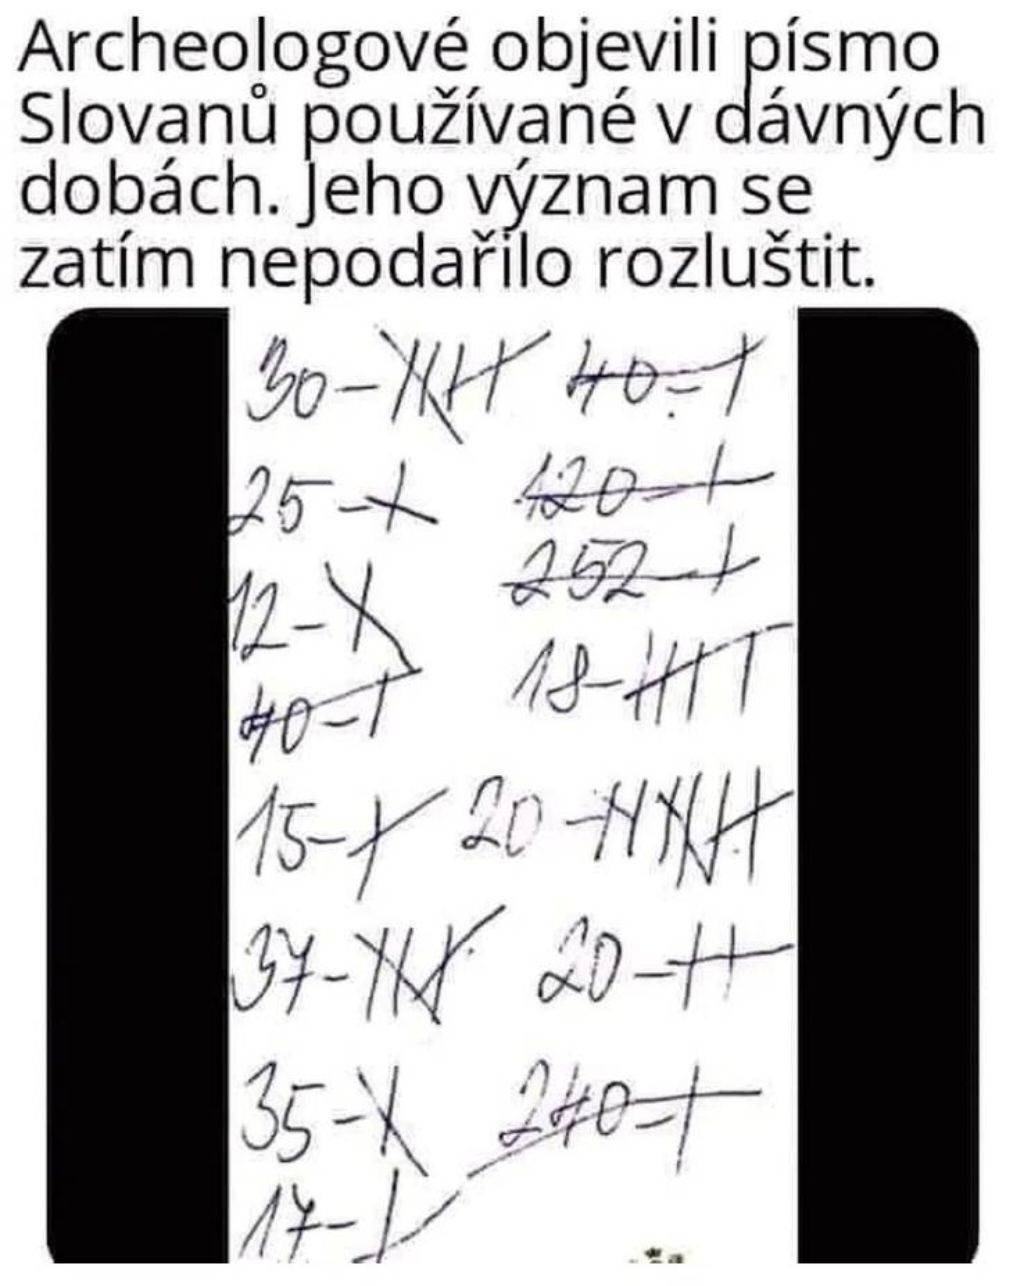 Archeologové objevili písmo
Slovanů používané v dávných
dobách. Jeho význam se
zatím nepodařilo rozluštit.
30- 40-
25- 120-
12- 252-
40- 18-
15- 20-
37- 20-
35- 240-
17-